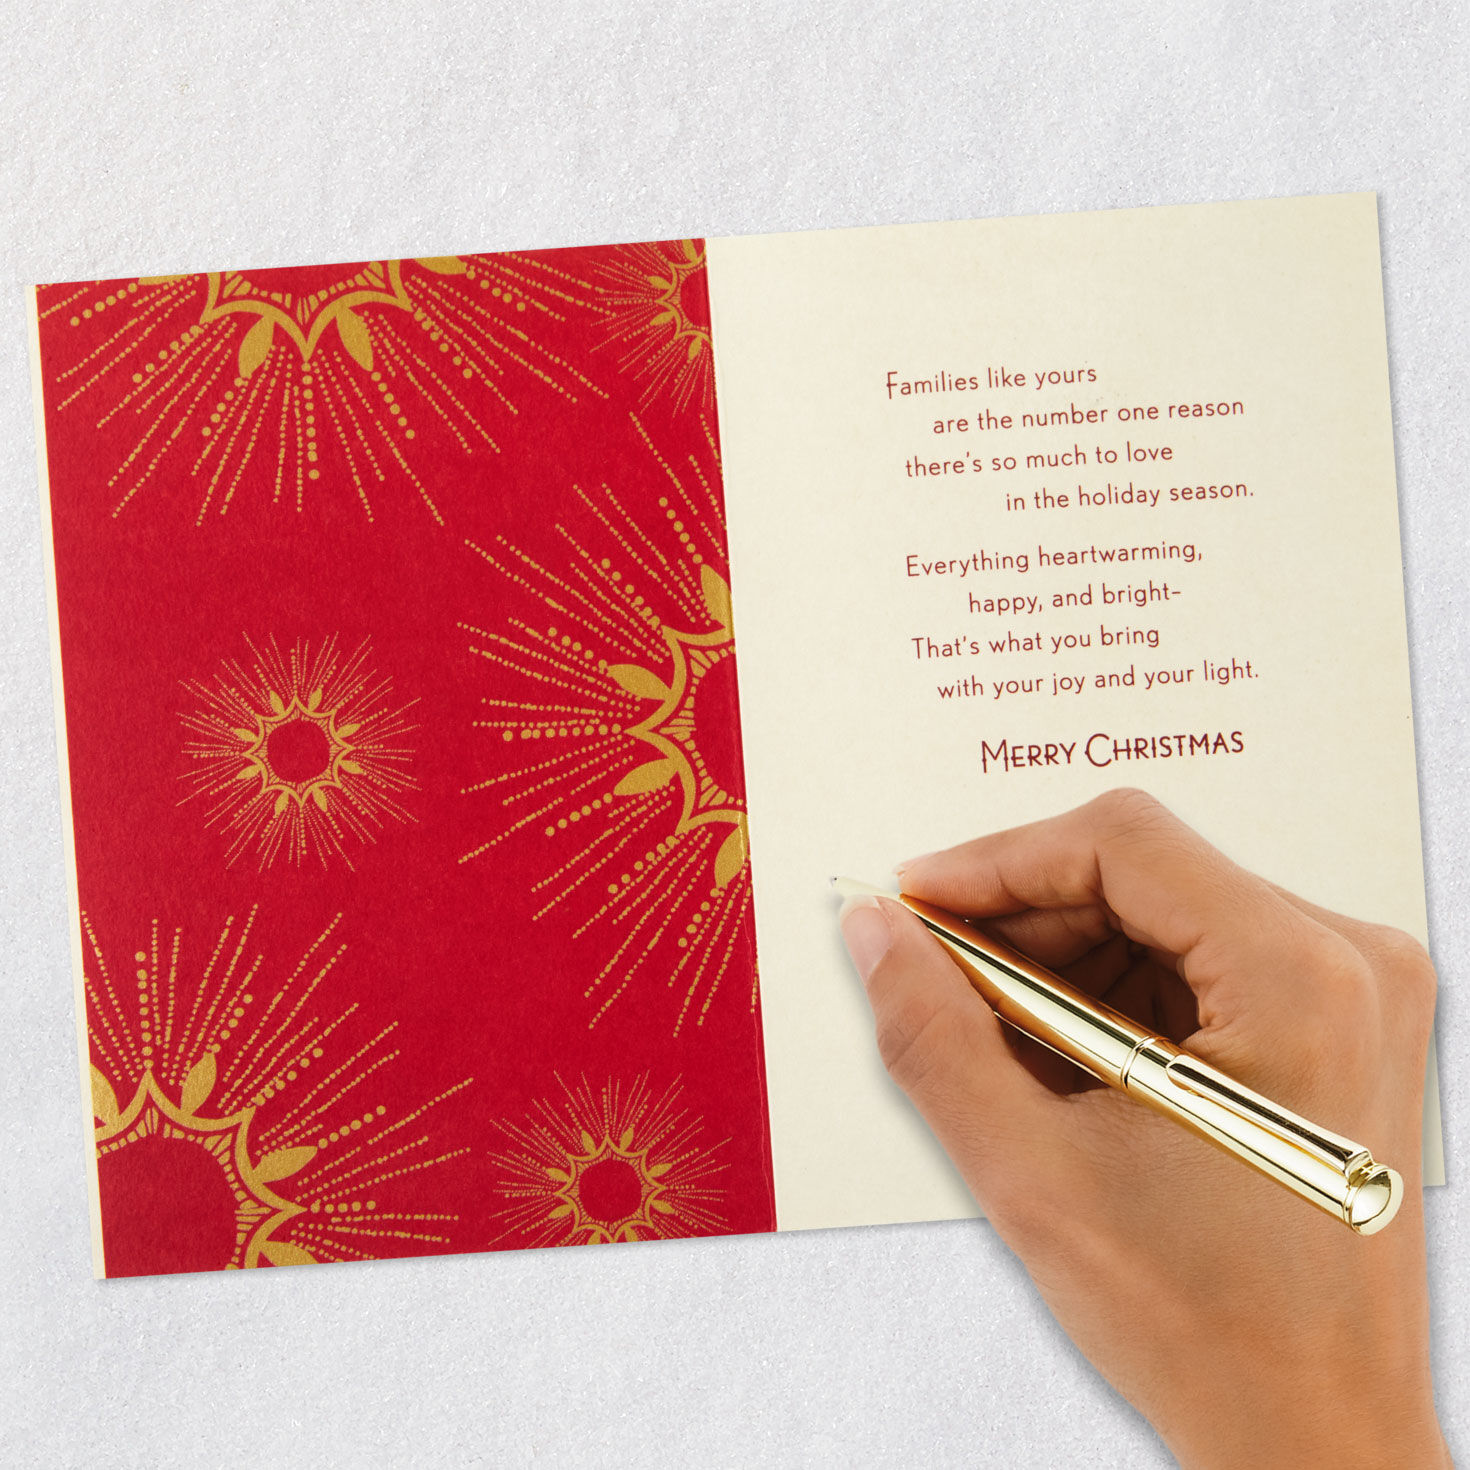 Families like yours
are the number one reason
there's so much to love
in the holiday season.
Everything heartwarming,
happy, and bright–
That's what you bring
with your joy and your light.
MERRY CHRISTMAS